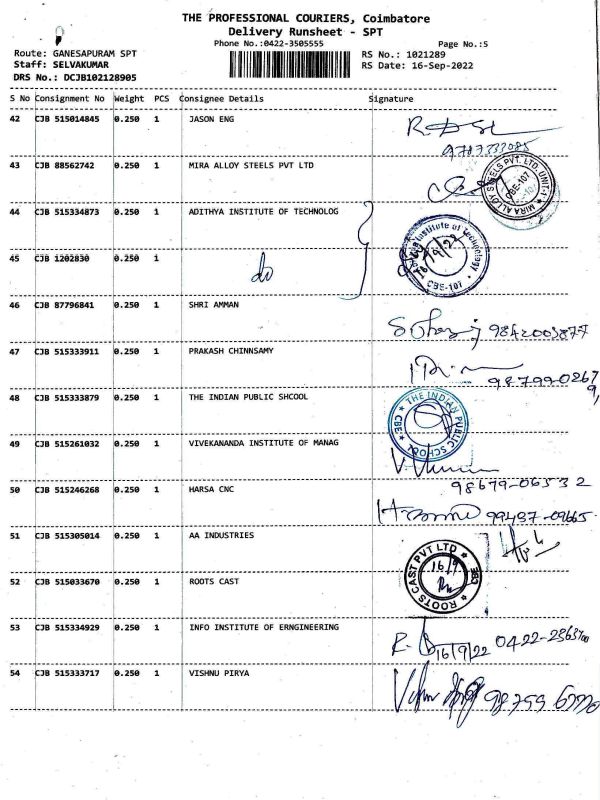 THE PROFESSIONAL COURIERS, Coimbatore
Delivery Runsheet - SPT
Phone No.:0422-3505555
Page No.:5
Route: GANESAPURAM SPT
RS No.: 1021289
Staff: SELVAKUMAR
RS Date: 16-Sep-2022
DRS No.: DCJB102128905
S No Consignment No Weight PCS Consignee Details Signature
42 CJB 515014845 0.250 1 JASON ENG
9787333085
43 CJB 88562742 0.250 1 MIRA ALLOY STEELS PVT LTD
MIRA ALLOY STEELS PVT. LTD. UNIT-1 CBE-107
44 CJB 515334873 0.250 1 ADITHYA INSTITUTE OF TECHNOLOG
Institute of Technology CBE-107
45 CJB 1202830 0.250 1
do
46 CJB 87796841 0.250 1 SHRI AMMAN
9842003877
47 CJB 515333911 0.250 1 PRAKASH CHINNSAMY
48 CJB 515333879 0.250 1 THE INDIAN PUBLIC SHCOOL
THE INDIAN PUBLIC SCHOOL CBE
49 CJB 515261032 0.250 1 VIVEKANANDA INSTITUTE OF MANAG
98679-06532
50 CJB 515246268 0.250 1 HARSA CNC
99437-09665
51 CJB 515305014 0.250 1 AA INDUSTRIES
52 CJB 515033670 0.250 1 ROOTS CAST
ROOTS CAST PVT LTD CBE
16/9
53 CJB 515334929 0.250 1 INFO INSTITUTE OF ERNGINEERING
16/9/22
54 CJB 515333717 0.250 1 VISHNU PIRYA